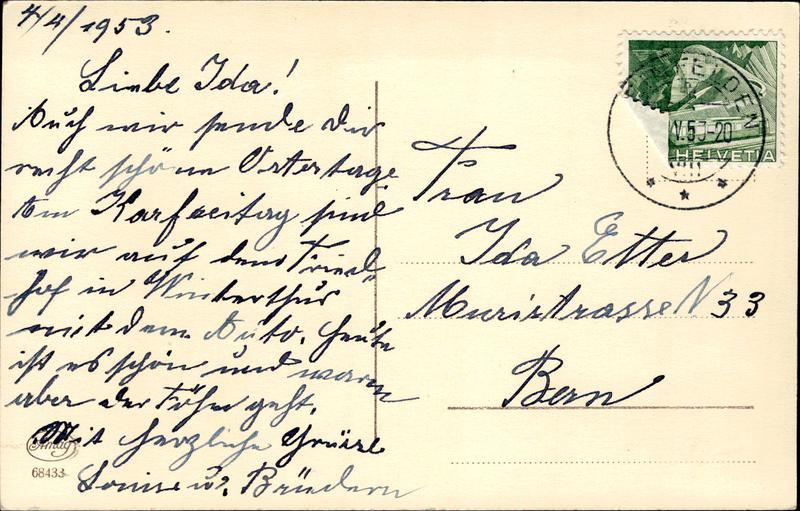 4/4/1953.
Liebe Ida!
Auch wir sende dir
recht schöne Ostertage
Am Karfreitag sind
wir auf dem Fried
hof in Winterthur
mit dem Auto. heute
ist es schön und warm
aber der Föhn geht.
Mit herzliche Grüsse
Louise u.
Frau
Ida Etter
Muristrasse N 33
Bern
HELVETIA
68433